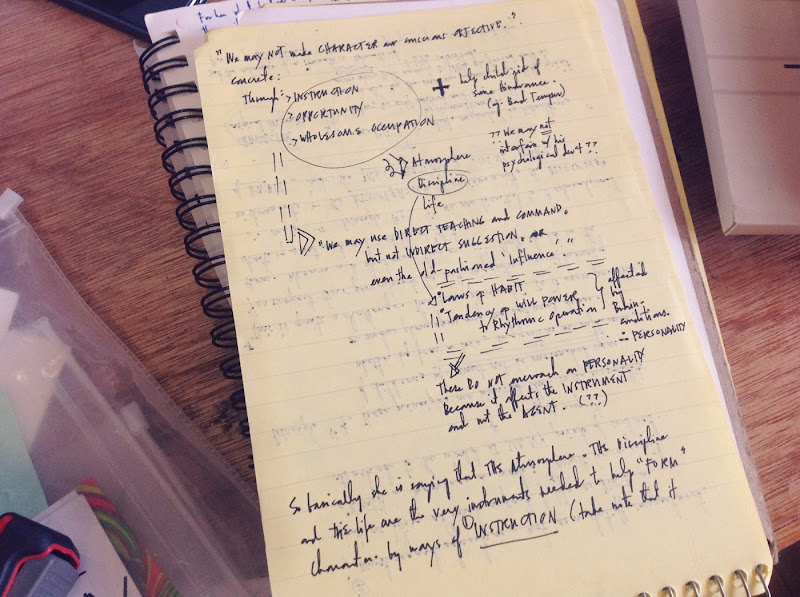 "We may NOT make CHARACTER our conscious OBJECTIVE."
Concrete:
Through: > INSTRUCTION
> OPPORTUNITY
> WHOLESOME OCCUPATION
+ help child rid of
some hindrance.
(eg. Bad Temper)
?? We may not
interfere w/ his
psychological dev't ??
Atmosphere
Discipline
life
"We may use DIRECT TEACHING and COMMAND,
but not INDIRECT SUGGESTION, OR
even the old-fashioned 'influence'."
Laws of HABIT
Tendency of WILL POWER
to Rhythmic Operation
affected
by
conditions.
∴ PERSONALITY
These DO NOT encroach on PERSONALITY
Because it affects the INSTRUMENT
and not the AGENT. (??)
So basically she is saying that the Atmosphere, the Discipline
and the life are the very instruments needed to help "FORM"
character by ways of ① INSTRUCTION (take note that it